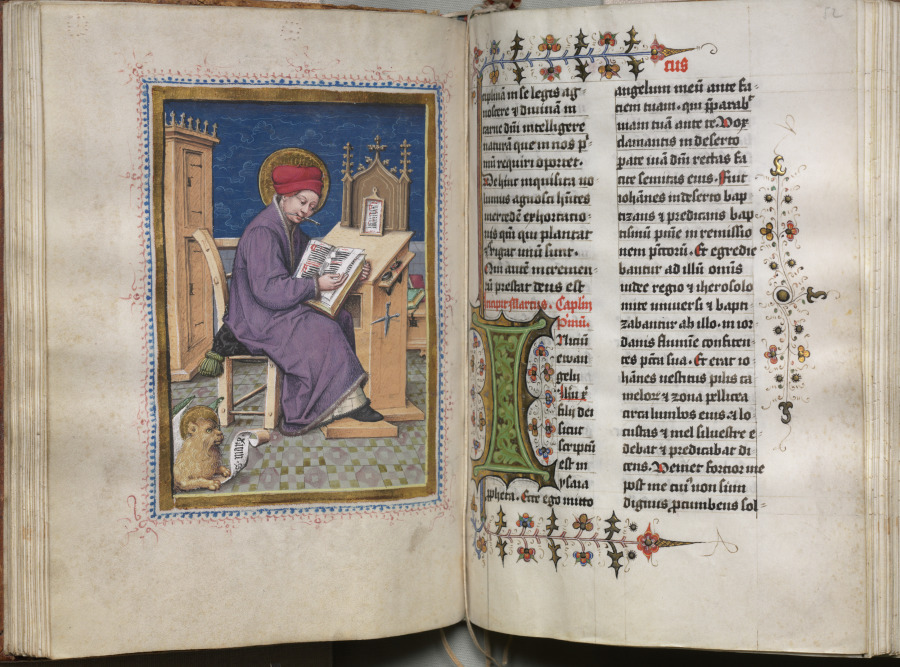 cus
52
ciplinā in se legis ag-
noscere ⁊ diuinā in
carne dn̄i intelligere
naturā que in nos p̄-
mū requiri oportet.
Dehinc inquisita uo
lumus agnosci hn̄tes
mercedē exhortacio-
nis qm̄ qui plantat
⁊ rigat unū sunt.
Qui autē incremen-
tū prestat deus est
Incipit Marcus. Caplm̄
Primū.
INiciū
ewan
gelii
Ihū xp̄
filii dei
sicut
scriptū
est in
ysaia
ꝓpheta. Ecce ego mitto
angelum meū ante fa-
ciem tuam. qui p̄parab̄
uiam tuā ante te. Vox
clamantis in deserto
parate uiā dn̄i rectas fa
cite semitas eius. Fuit
iohānes in deserto bap
tizans ⁊ predicans bap
tismū pn̄ie in remissio
nem pctōrū. Et egredie
bantur ad illū omīs
iudee regio ⁊ iherosolo
mite uniuersi ⁊ bapti
zabantur ab illo. in ior
danis flumīe confiten
tes pctā sua. Et erat io
hānes uestitus pilis ca
melor̄ ⁊ zona pellicea
circa lumbos eius. ⁊ lo
custas ⁊ mel siluestre e
debat ⁊ predicabat di
cens. Veniet fortior me
post me cui' non sum
dignus ꝓcumbens sol-